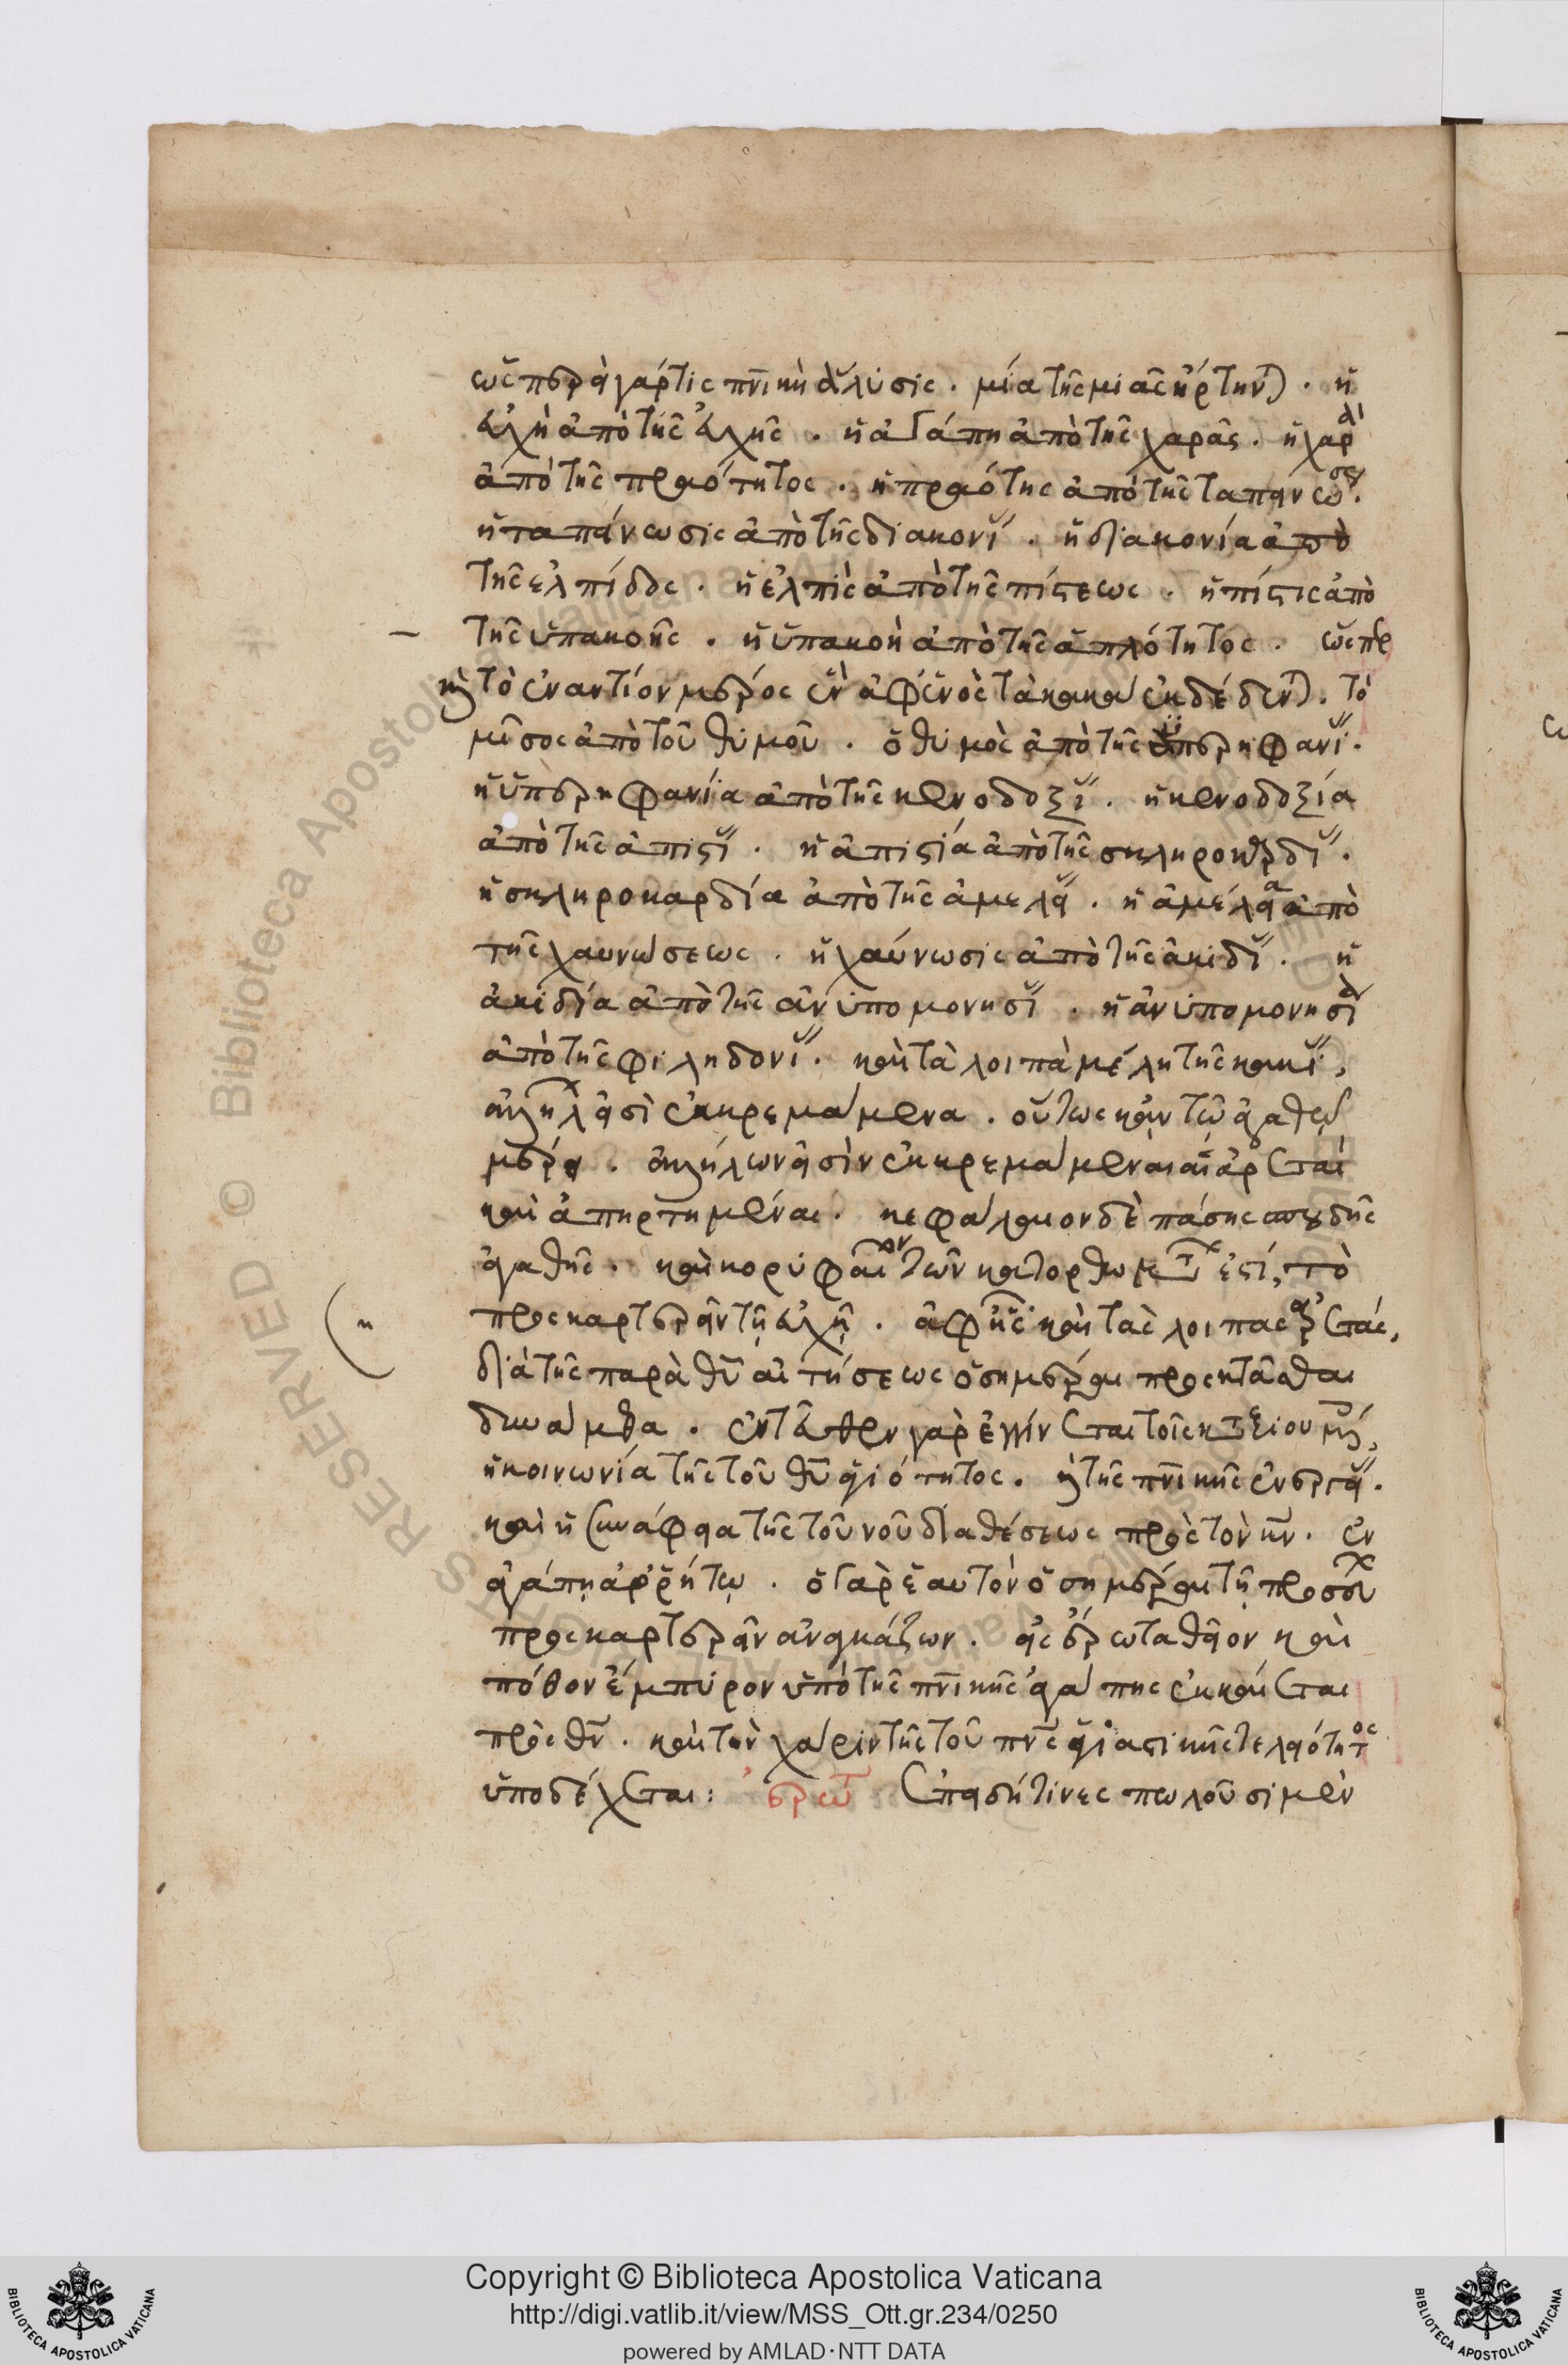 ὥσπερ γάρ τις πνικὴ ἅλυσις. μία τῆς μιᾶς ἤρτηνται. ἡ
εὐχὴ ἀπὸ τῆς εὐχῆς. ἡ ἀγάπη ἀπὸ τῆς χαρᾶς. ἡ χαρὰ
ἀπὸ τῆς πραότητος. ἡ πραότης ἀπὸ τῆς ταπεινώσεως.
ἡ ταπείνωσις ἀπὸ τῆς διακονίας. ἡ διακονία ἀπὸ
τῆς ἐλπίδος. ἡ ἐλπὶς ἀπὸ τῆς πίστεως. ἡ πίστις ἀπὸ
τῆς ὑπακοῆς. ἡ ὑπακοὴ ἀπὸ τῆς ἁπλότητος. ὥσπερ
καὶ τὸ ἐναντίον μέρος ἓν ἀφ' ἑνὸς τὰ κακὰ ἐκδέδενται. τὸ
μῖσος ἀπὸ τοῦ θυμοῦ. ὁ θυμὸς ἀπὸ τῆς ὑπερηφανίας.
ἡ ὑπερηφανία ἀπὸ τῆς κενοδοξίας. ἡ κενοδοξία
ἀπὸ τῆς ἀπιστίας. ἡ ἀπιστία ἀπὸ τῆς σκληροκαρδίας.
ἡ σκληροκαρδία ἀπὸ τῆς ἀμελείας. ἡ ἀμέλεια ἀπὸ
τῆς χαυνώσεως. ἡ χαύνωσις ἀπὸ τῆς ἀκιδίας. ἡ
ἀκιδία ἀπὸ τῆς ἀνυπομονησίας. ἡ ἀνυπομονησία
ἀπὸ τῆς φιληδονίας. καὶ τὰ λοιπὰ μέλη τῆς κακίας,
ἀλλήλων εἰσὶ ἐκκρεμάμενα. οὕτως κἀν τῷ ἀγαθῷ
μέρει. ἀλλήλων εἰσὶν ἐκκρεμάμεναι αἱ ἀρεταὶ
καὶ ἀπηρτημέναι. κεφάλαιον δὲ πάσης σπουδῆς
ἀγαθῆς. καὶ κορυφαῖον τῶν κατορθωμάτων ἐστί, τὸ
προσκαρτερεῖν τῇ εὐχῇ. ἀφ' ἧς καὶ τὰς λοιπὰς ἀρετάς,
διὰ τῆς παρὰ θυ αἰτήσεως ὁσημέραι προσκτᾶσθαι
δυνάμεθα. ἐντεῦθεν γὰρ ἐγγίνεται τοῖς καταξιουμένοις,
ἡ κοινωνία τῆς τοῦ θυ ἁγιότητος. καὶ τῆς πνικῆς ἐνεργείας.
καὶ ἡ συνάφεια τῆς τοῦ νοῦ διαθέσεως πρὸς τὸν κν. ἐν
ἀγάπῃ ἀρρήτῳ. ὁ γὰρ ἑαυτὸν ὁσημέραι τῇ προσευχῇ
προσκαρτερεῖν ἀναγκάζων. εἰς ἔρωτα θεῖον καὶ
πόθον ἔμπυρον ὑπὸ τῆς πνικῆς ἀγάπης ἐκκαίεται
πρὸς θν. καὶ τὴν χάριν τῆς τοῦ πνς ἁγιαστικῆς τελειότητος
ὑποδέχεται: ἐρωτ Ἐπειδή τινες πωλοῦσι μὲν
Copyright © Biblioteca Apostolica Vaticana
http://digi.vatlib.it/view/MSS_Ott.gr.234/0250
powered by AMLAD·NTT DATA